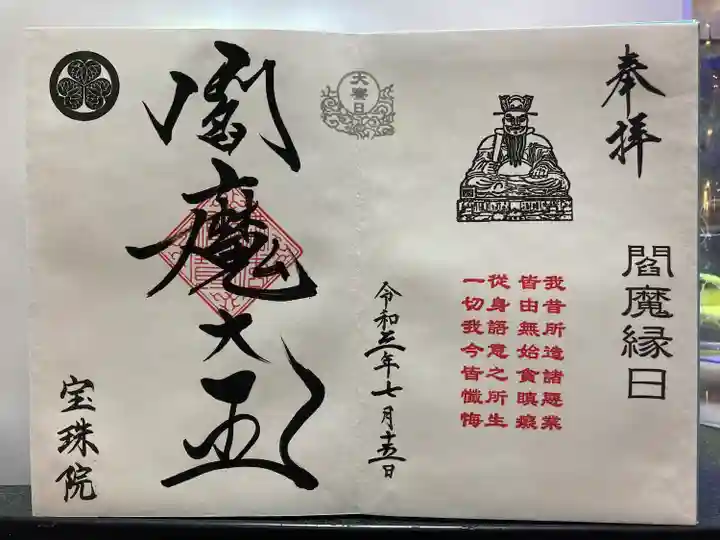 奉拝
閻魔縁日
我昔所造諸悪業
皆由無始貪瞋癡
從身語意之所生
一切我今皆懺悔
令和三年七月十五日
大寒日
閻魔大王
宝珠院